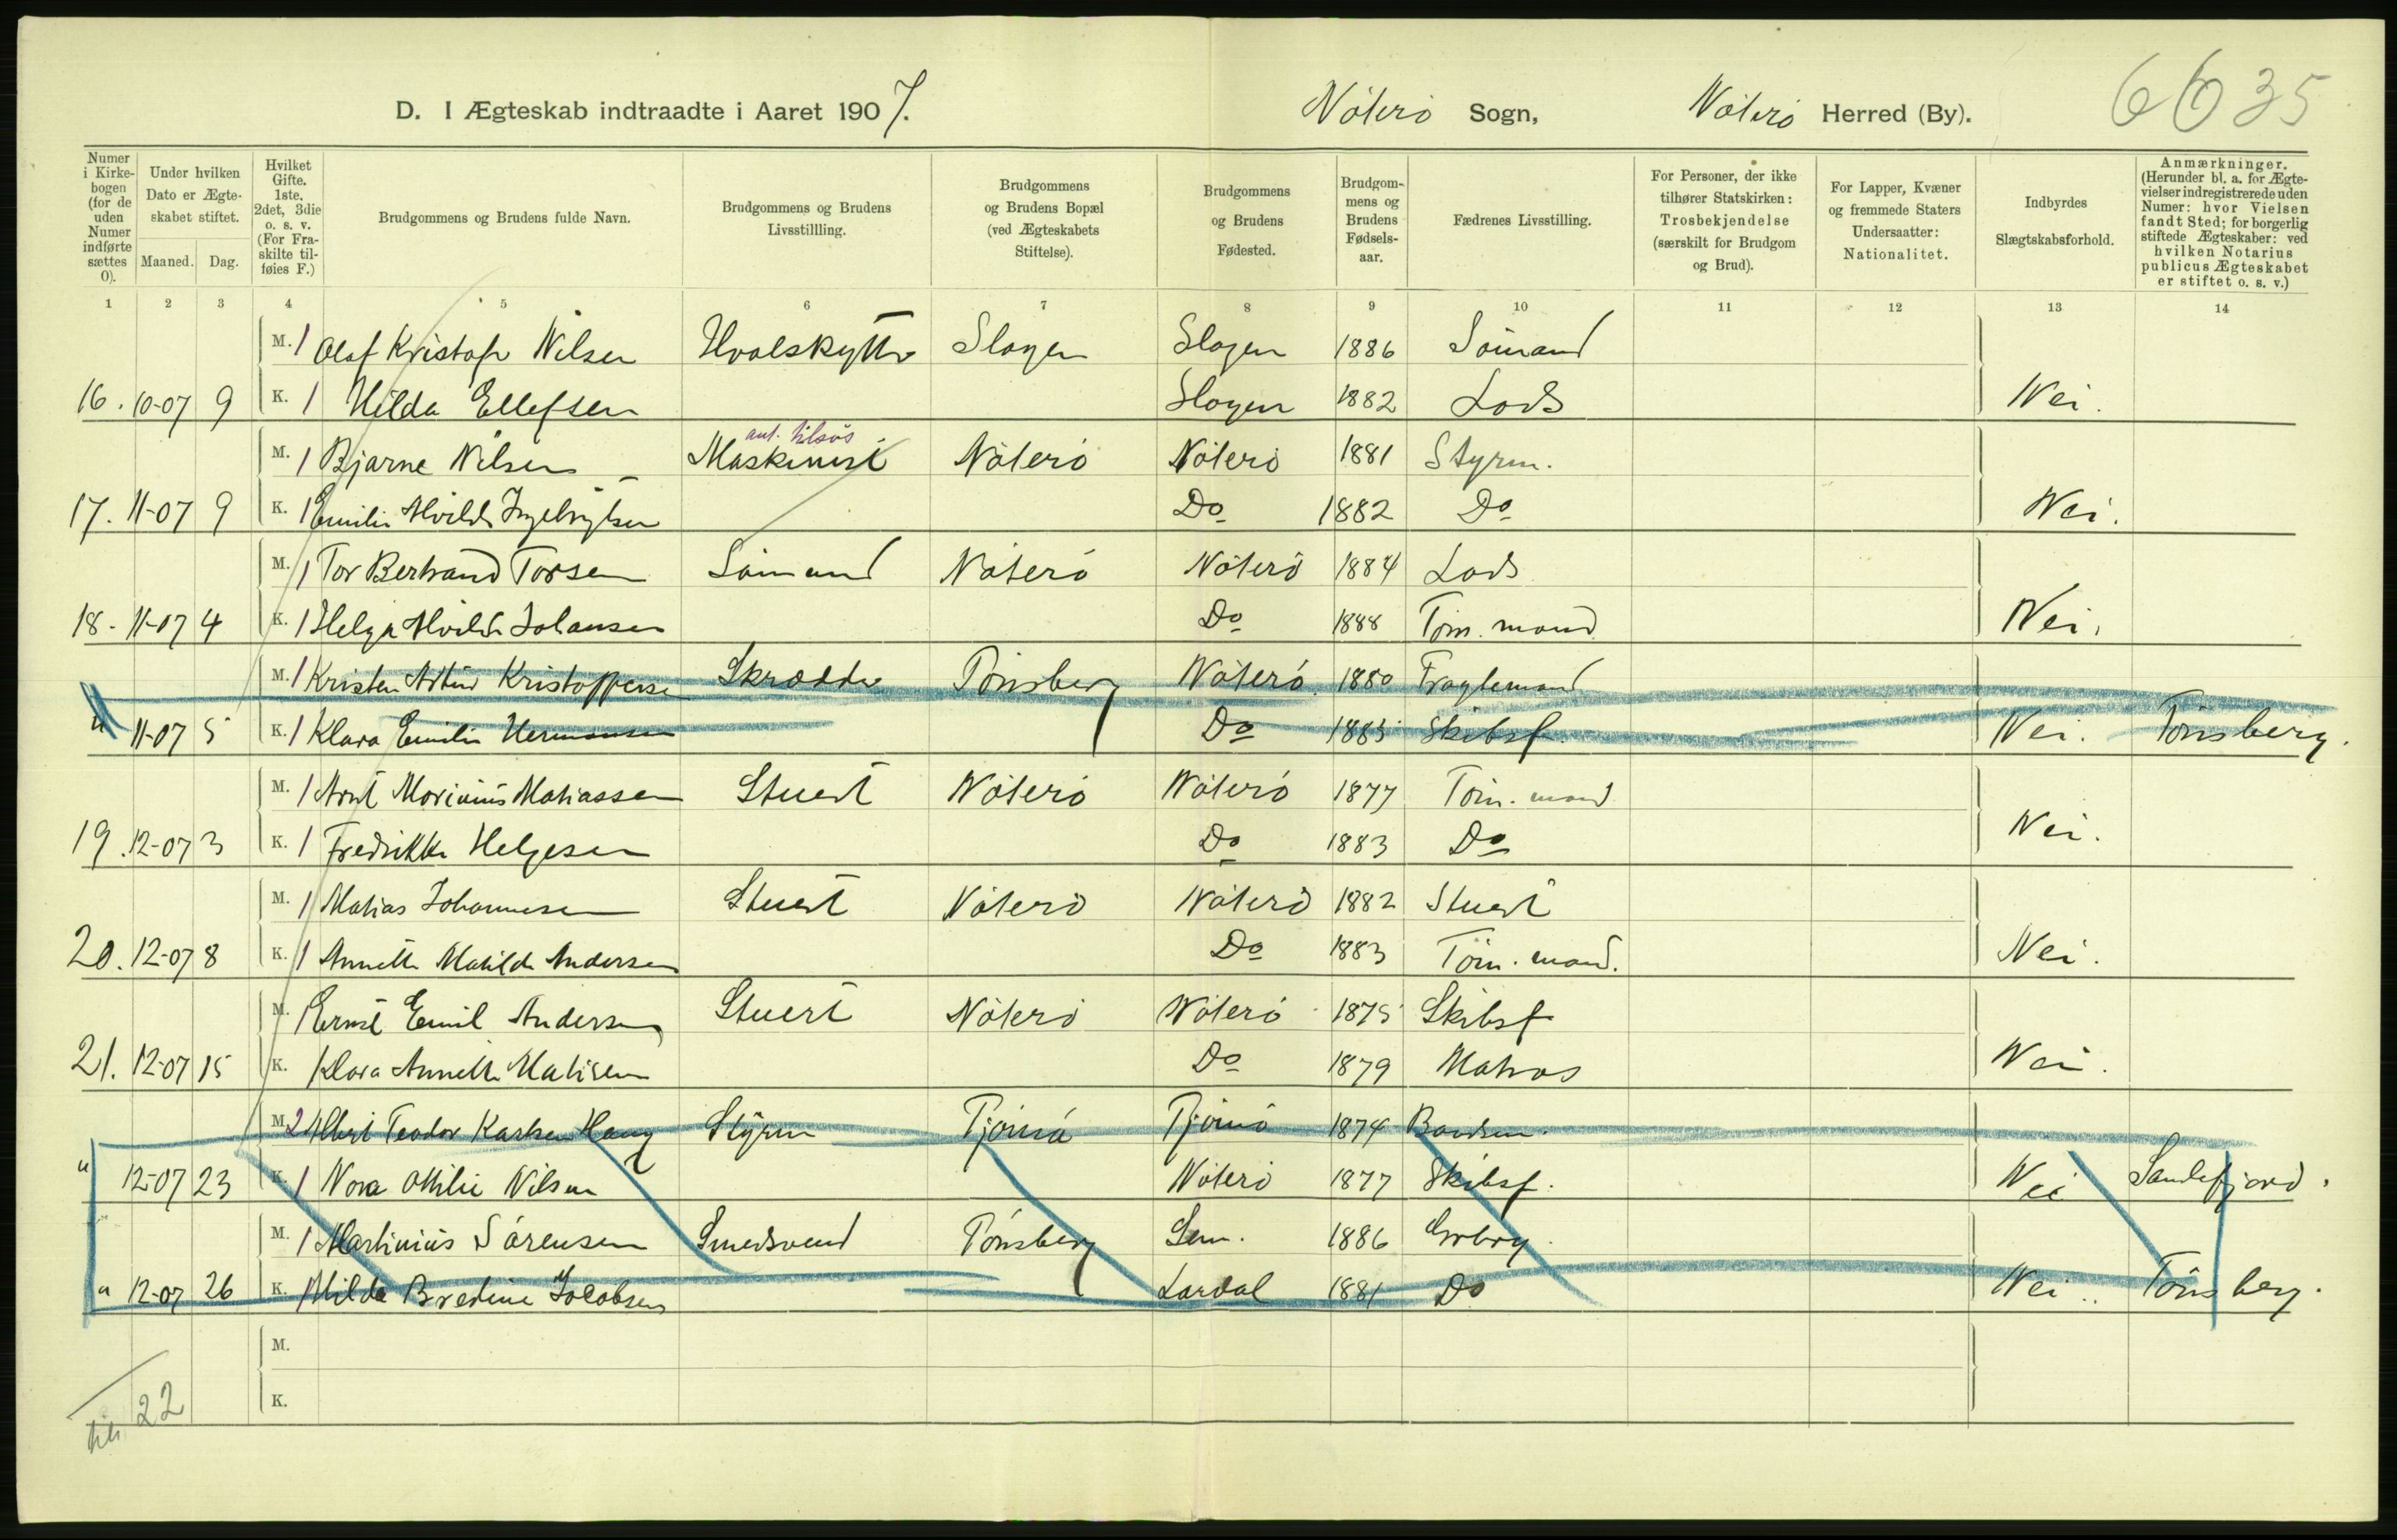 D. I Ægteskab indtraadte i Aaret 1907. Nöterö Sogn, Nöterö Herred (By). 6635
Numer i Kirkebogen (for de uden Numer indførte sættes 0). Under hvilken Dato er Ægteskabet stiftet. Maaned. Dag. Hvilket Gifte. 1ste, 2det, 3die o. s. v. (For Fraskilte tilføies F.) Brudgommens og Brudens fulde Navn. Brudgommens og Brudens Livsstillling. Brudgommens og Brudens Bopæl (ved Ægteskabets Stiftelse). Brudgommens og Brudens Fødested. Brudgommens og Brudens Fødselsaar. Fædrenes Livsstilling. For Personer, der ikke tilhører Statskirken: Trosbekjendelse (særskilt for Brudgom og Brud). For Lapper, Kvæner og fremmede Staters Undersaatter: Nationalitet. Indbyrdes Slægtskabsforhold. Anmærkninger. (Herunder bl. a. for Ægtevielser indregistrerede uden Numer: hvor Vielsen fandt Sted; for borgerlig stiftede Ægteskaber: ved hvilken Notarius publicus Ægteskabet er stiftet o. s. v.)
1 2 3 4 5 6 7 8 9 10 11 12 13 14
M. 1 Olaf Kristofr Nilsen Hvalskytter Slagen Slagen 1886 Sömand
16. 10-07 9 K. 1 Hilda Ellefsen Slagen 1882 Lods Nei.
M. 1 Bjarne Nilsen Maskinist Nöterö Nöterö 1881 Styrm.
17. 11-07 9 K. 1 Emilie Alvilde Ingebrigtsen Do 1882 Do Nei.
M. 1 Tor Bertrand Torsen Sömand Nöterö Nöterö 1884 Lods
18. 11-07 4 K. 1 Helga Alvilde Johansen Do 1888 Töm. mand Nei.
M. 1 Kristen Artur Kristoffersen Skrædder Tönsberg Nöterö. 1880 Fragtemand
" 11-07 5 K. 1 Klara Emilie Hermansen Do 1883 Skibsf. Nei. Tönsberg.
M. 1 Arnt Marinius Matiassen Stuert Nöterö Nöterö 1877 Töm. mand
19. 12-07 3 K. 1 Fredrikke Helgesen Do 1883 Do Nei.
M. 1 Matias Johannesen Stuert Nöterö Nöterö 1882 Stuert
20. 12-07 8 K. 1 Annette Matilde Andersen Do 1883 Töm. mand. Nei.
M. 1 Ernst Emil Andersen Stuert Nöterö Nöterö 1875 Skibsf
21. 12-07 15 K. 1 Klara Annette Matisen Do 1879 Matros Nei.
M. 2 Albert Teodor Karlsen Haug Styrm Tjömö Tjömö 1874
" 12-07 23 K. 1 Nora Otilie Nilsen Nöterö 1877 Skibsf. Nei Sandefjord.
M. 1 Martinius Sörensen Smedsvend Tönsberg Sem. 1886
" 12-07 26 K. 1 Hilda Bredine Jacobsen Lardal 1881 Do Nei. Tönsberg.
M.
K.
22